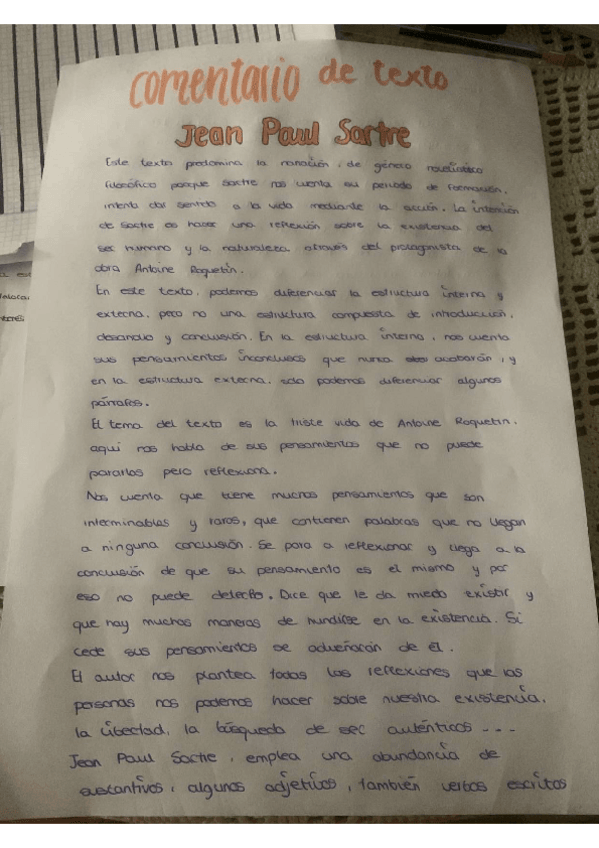 comentario de texto
Jean Paul Sartre
Este texto predomina la narración, de género novelístico
filosófico porque Sartre nos cuenta su periodo de formación,
intenta dar sentido a la vida mediante la acción. La intención
de Sartre es hacer una reflexión sobre la existencia del
ser humano y la naturaleza, através del protagonista de la
obra Antoine Roquetin.
En este texto, podemos diferenciar la estructura interna y
externa, pero no una estructura compuesta de introducción,
desarrollo y conclusión. En la estructura interna, nos cuenta
sus pensamientos inconclusos que nunca acabarán, y
en la estructura externa, solo podemos diferenciar algunos
párrafos.
El tema del texto es la triste vida de Antoine Roquetin,
aquí nos habla de sus pensamientos que no puede
pararlos pero reflexiona.
Nos cuenta que tiene muchos pensamientos que son
interminables y raros, que contienen palabras que no llegan
a ninguna conclusión. Se para a reflexionar y llega a la
conclusión de que su pensamiento es él mismo y por
eso no puede deterlo. Dice que le da miedo existir y
que hay muchas maneras de hundirse en la existencia. Si
cede sus pensamientos se adueñarán de él.
El autor nos plantea todas las reflexiones que las
personas nos podemos hacer sobre nuestra existencia,
la libertad, la búsqueda de ser auténticos ...
Jean Paul Sartre, emplea una abundancia de
sustantivos, algunos adjetivos, también verbos escritos